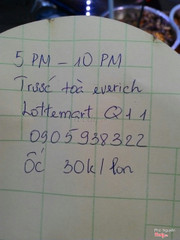 5 PM – 10 PM
Trước toà everich
Lottemart Q11
0905938322
Ốc 30k/lon